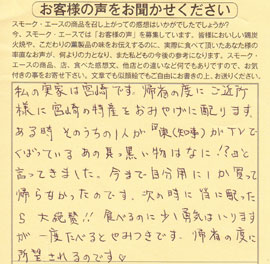 お客様の声をお聞かせください
スモーク・エースの商品を召し上がってのご感想はいかがでしたでしょうか?
今、スモーク・エースでは「お客様の声」を募集しています。皆様においしい鶏炭
火焼や、こだわりの薫製品の味をお伝えするのに、実際に食べて頂いたあなた様の
率直なお声が、何よりの力となり、また私どもの今後の参考になります。スモーク・
エースの商品、店、食べた感想文、他店との違いなど何でもありですので、お気
付きの事をお寄せ下さい。文章でも似顔絵でもご自由にお書きの上、お送りください。
私の実家は宮崎です。帰省の度にご近所
様に宮崎の特産をおみやげに配ります。
ある時そのうちの1人が「東(知事)がTVで
くばっている あの真っ黒い物はなに!?」と
言ってきました。今まで自分用にしか買って
帰らなかったのです。次の時に皆に配った
ら 大絶賛!! 食べるのに少し勇気はいります
が 一度たべるとやみつきです。帰省の度に
所望されるのです♡